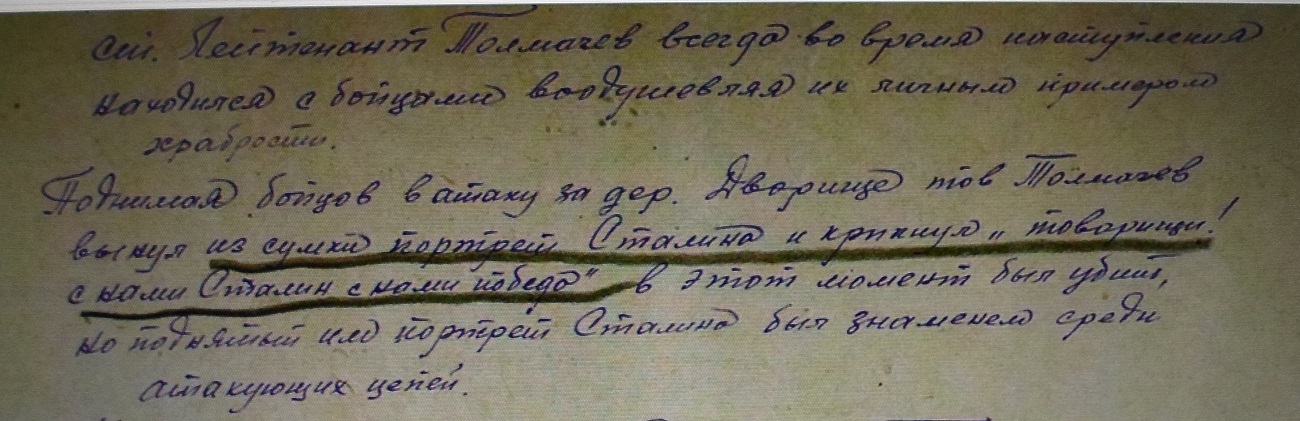 ст. Лейтенант Толмачев всегда во время наступления
находился с бойцами воодушевляя их личным примером
храбрости.
Поднимая бойцов в атаку за дер. Дворище тов Толмачев
вынул из сумки портрет Сталина и крикнул „товарищи!
с нами Сталин с нами победа" в этот момент был убит,
но поднятый им портрет Сталина был знаменем среди
атакующих цепей.